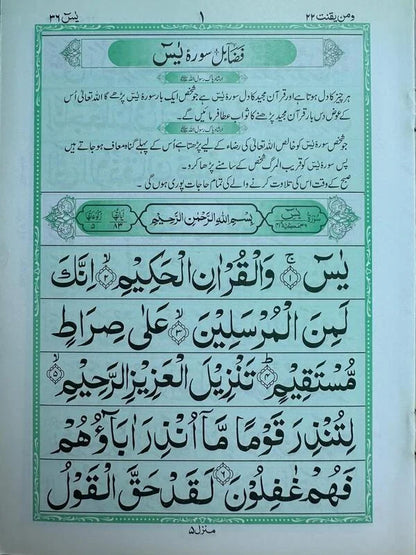 ومن یقنت ۲۲ ۱ یٰسٓ ۳۶
فضائل سورہ یٰسٓ
ارشاد پاک رسول اللہ ﷺ
ہر چیز کا دل ہوتا ہے اور قرآن مجید کا دل سورہ یٰسٓ ہے جو شخص ایک بار سورہ یٰسٓ پڑھے گا اللہ تعالیٰ اُس
کے عوض دس بار قرآن مجید پڑھنے کا ثواب عطا فرمائیں گے۔
ارشاد پاک رسول اللہ ﷺ
جو شخص سورہ یٰسٓ کو خالص اللہ تعالیٰ کی رضاء کے لیے پڑھتا ہے اُس کے پہلے گناہ معاف ہو جاتے ہیں
پس سورہ یٰسٓ کو قریب المرگ شخص کے سامنے پڑھا کرو۔
صبح کے وقت اس کی تلاوت کرنے والے کی تمام حاجات پوری ہوں گی۔
سورۃ یٰسٓ بِسْمِ اللهِ الرَّحْمٰنِ الرَّحِيْمِ اٰیاتھا ۸۳ رکوعاتھا ۵
يٰسٓ ۚ﴿۱﴾ وَالْقُرْاٰنِ الْحَكِيْمِ ۙ﴿۲﴾ اِنَّكَ
لَمِنَ الْمُرْسَلِيْنَ ۙ﴿۳﴾ عَلٰى صِرَاطٍ
مُّسْتَقِيْمٍ ؕ﴿۴﴾ تَنْزِيْلَ الْعَزِيْزِ الرَّحِيْمِ ۙ﴿۵﴾
لِتُنْذِرَ قَوْمًا مَّاۤ اُنْذِرَ اٰبَآؤُهُمْ
فَهُمْ غٰفِلُوْنَ ﴿۶﴾ لَقَدْ حَقَّ الْقَوْلُ
منزل ۵